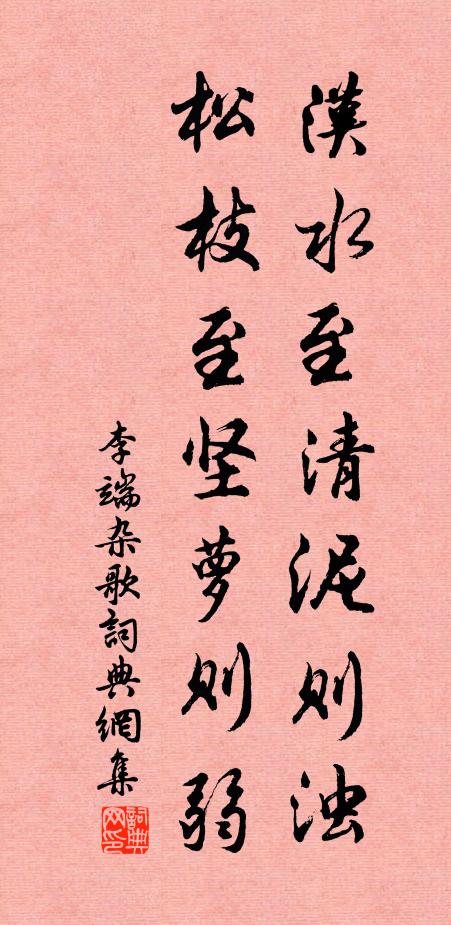 漢水至清泥则浊
松枝至坚萝则弱
李端杂歌詞典網集
詞典网印